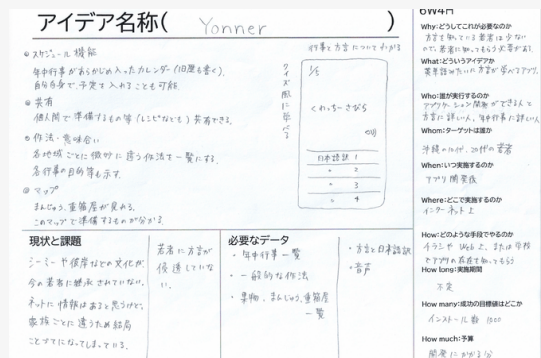 アイデア名称( Yonner )
行事と方言についてわかる
◎ スケジュール機能
年中行事があらかじめ入ったカレンダー(旧暦も書く)。
自分自身で、予定を入れることも可能。
◎ 共有
個人間で準備するもの等(レシピなども)共有できる。
◎ 作法・意味合い
各地域ごとに微妙に違う作法を一覧にする。
各行事の目的等も示す。
◎ マップ
まんじゅう、重箱屋が見れる。
このマップで準備するものが分かる。
クイズ風に学べる
1/5
くわっちーさびら
日本語訳 1
〃 2
〃 3
〃 4
現状と課題
シーミーや彼岸などの文化が、
今の若者に継承されていない。
ネットに情報はあると思うけど、
家族ごとに違うため結局
ことづてになってしまっている。
若者に方言が
浸透していな
い。
必要なデータ
・年中行事一覧
・一般的な作法
・果物、まんじゅう、重箱屋
一覧
・方言と日本語訳
・音声
6W4H
Why:どうしてこれが必要なのか
方言を知っている若者は少ない
ので、若者に知ってもらう必要がある。
What:どういうアイデアか
英単語みたいに方言が学べるアプリ。
Who:誰が実行するのか
アプリケーション開発ができる人と
方言に詳しい人、年中行事に詳しい人
Whom:ターゲットは誰か
沖縄の10代、20代の若者
When:いつ実施するのか
アプリ開発後
Where:どこで実施するのか
インターネット上
How:どのような手段でやるのか
チラシやWeb上、または学校
でアプリの存在を知ってもらう
How long:実施期間
不定
How many:成功の目標値はどこか
インストール数 1000
How much:予算
開発にかかる分